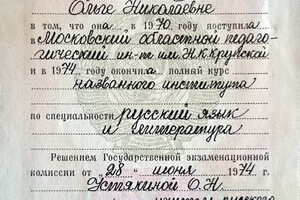 Ольге Николаевне
в том, что она в 1970 году поступила
в Московский областной педаго-
гический ин-т им. Н.К.Крупской
и в 1974 году окончила полный курс
названного института
по специальности русский язык
и литература
Решением Государственной экзаменационной
комиссии от "28" июня 1974 г.
Устякиной О.Н.
русского